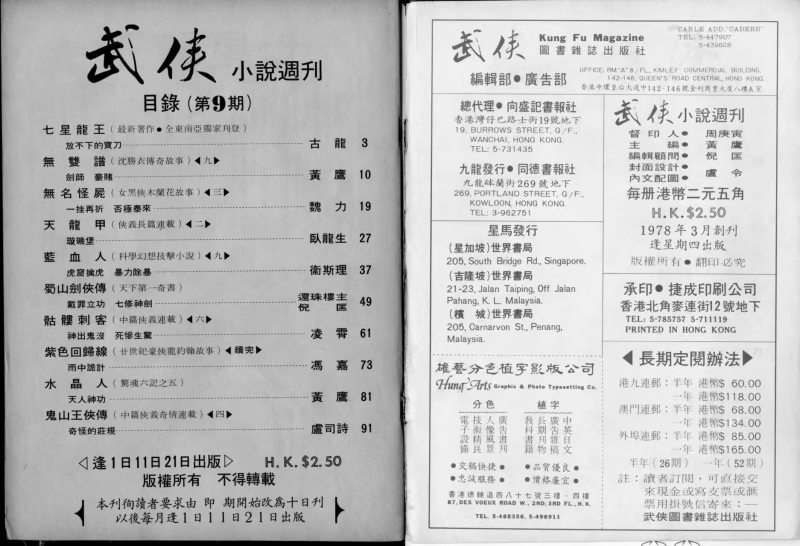 武俠 小說週刊
目錄（第9期）
七星龍王（最新著作●全東南亞獨家刊登）
放不下的寶刀 古龍 3
無雙譜（沈勝衣傳奇故事）◀九▶
劍師 豪賭 黃鷹 10
無名怪屍（女黑俠木蘭花故事）◀三▶
一挫再折 否極泰來 魏力 19
天龍甲（俠義長篇連載）◀二▶
璇璣堡 臥龍生 27
藍血人（科學幻想技擊小說）◀九▶
虎窟擒虎 暴力除暴 衞斯理 37
蜀山劍俠傳（天下第一奇書）
戴罪立功 七修神劍 還珠樓主 倪匡 49
骷髏刺客（中篇俠義連載）◀六▶
神出鬼沒 死慘生驚 凌霄 61
紫色回歸線（廿世紀豪俠龍約翰故事）◀續完▶
雨中詭計 馮嘉 73
水晶人（驚魂六記之五）
天人神功 黃鷹 81
鬼山王俠傳（中篇俠義奇情連載）◀四▶
奇怪的莊規 盧司詩 91
◁逢1日11日21日出版▷ H.K.$2.50
版權所有 不得轉載
本刋徇讀者要求由即期開始改為十日刋
以後每月逢1日11日21日出版
武俠 Kung Fu Magazine
圖書雜誌出版社
CABLE ADD. "CADERS"
TEL: 5-447907
5-439828
編輯部●廣告部
OFFICE: RM "A" 8/FL., KIMLEY COMMERCIAL BUILDING,
142-146, QUEEN'S ROAD CENTRAL, HONG KONG.
香港中環皇后大道中142-146號金利商業大廈八樓A室
總代理●向盛記書報社
香港灣仔巴路士街19號地下
19, BURROWS STREET, G/F.,
WANCHAI, HONG KONG.
TEL: 5-731435
九龍發行●同德書報社
九龍砵蘭街269號地下
269, PORTLAND STREET, G/F.,
KOWLOON, HONG KONG.
TEL: 3-962751
星馬發行
(星加坡)世界書局
205, South Bridge Rd., Singapore.
(吉隆坡)世界書局
21-23, Jalan Taiping, Off Jalan
Pahang, K. L. Malaysia.
(檳城)世界書局
205, Carnarvon St., Penang,
Malaysia.
雄藝分色植字影版公司
Hung Arts Graphic & Photo Typesetting Co.
分色 植字
電技人廣 教長廣中
子術像告 科期告英
設精情文 書刊雜文
備良景件 籍物稿文
●交稿快捷● ●品質優良●
●忠誠服務● ●價格廉宜●
香港德輔道西八十七號三樓、四樓
87, DES VOEUX ROAD W., 2ND; 3RD FL., H.K.
TEL. 5-488356, 5-498911
武俠小說週刊
督印人●周庚寅
主編●黃鷹
編輯顧問●倪匡
封面設計●
內文配圖●盧令
每册港幣二元五角
H.K.$2.50
1978年3月創刋
逢星期四出版
版權所有●翻印必究
承印●捷成印刷公司
香港北角麥連街12號地下
TEL: 5-785757 5-711119
PRINTED IN HONG KONG
◀長期定閱辦法▶
港九連郵：半年 港幣$ 60.00
一年 港幣$118.00
澳門連郵：半年 港幣$ 68.00
一年 港幣$134.00
外埠連郵：半年 港幣$ 85.00
一年 港幣$165.00
半年(26期) 一年(52期)
註：讀者訂閱，可直接交
來現金或寫支票或滙
票用掛號信寄來：—
武俠圖書雜誌出版社